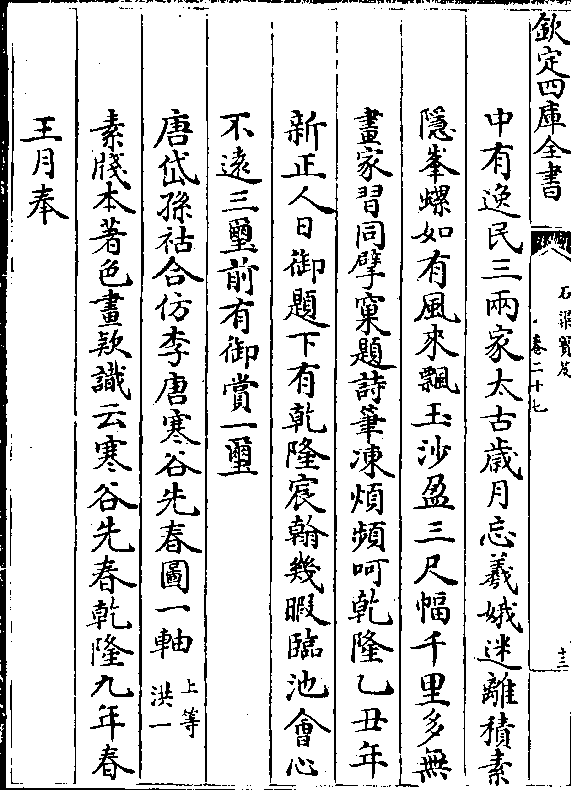 欽定四庫全書
石渠寳笈
卷二十七
十三
中有逸民三兩家太古歳月忘羲娥迷離積素
隱峯螺如有風來飄玉沙盈三尺幅千里多無
畫家習同擘窠題詩筆凍煩頻呵乾隆乙丑年
新正人日御題下有乾隆宸翰幾暇臨池會心
不逺三璽前有御賞一璽
唐岱孫祜合仿李唐寒谷先春圖一軸上等洪一
素牋本著色畫欵識云寒谷先春乾隆九年春
王月奉